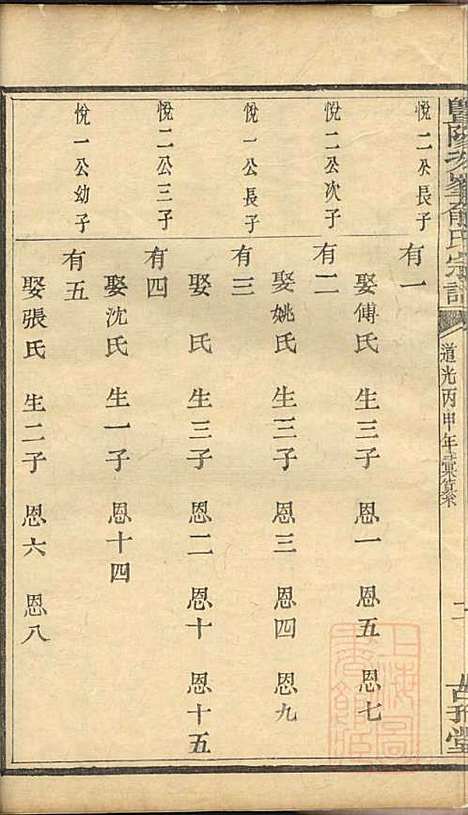 暨陽次峯俞氏宗譜
道光丙申年彙纂
古孝堂
悅二公長子
有一
娶傅氏 生三子 恩一 恩五 恩七
悅二公次子
有二
娶姚氏 生三子 恩三 恩四 恩九
悅一公長子
有三
娶 氏 生三子 恩二 恩十 恩十五
悅二公三子
有四
娶沈氏 生一子 恩十四
悅一公幼子
有五
娶張氏 生二子 恩六 恩八